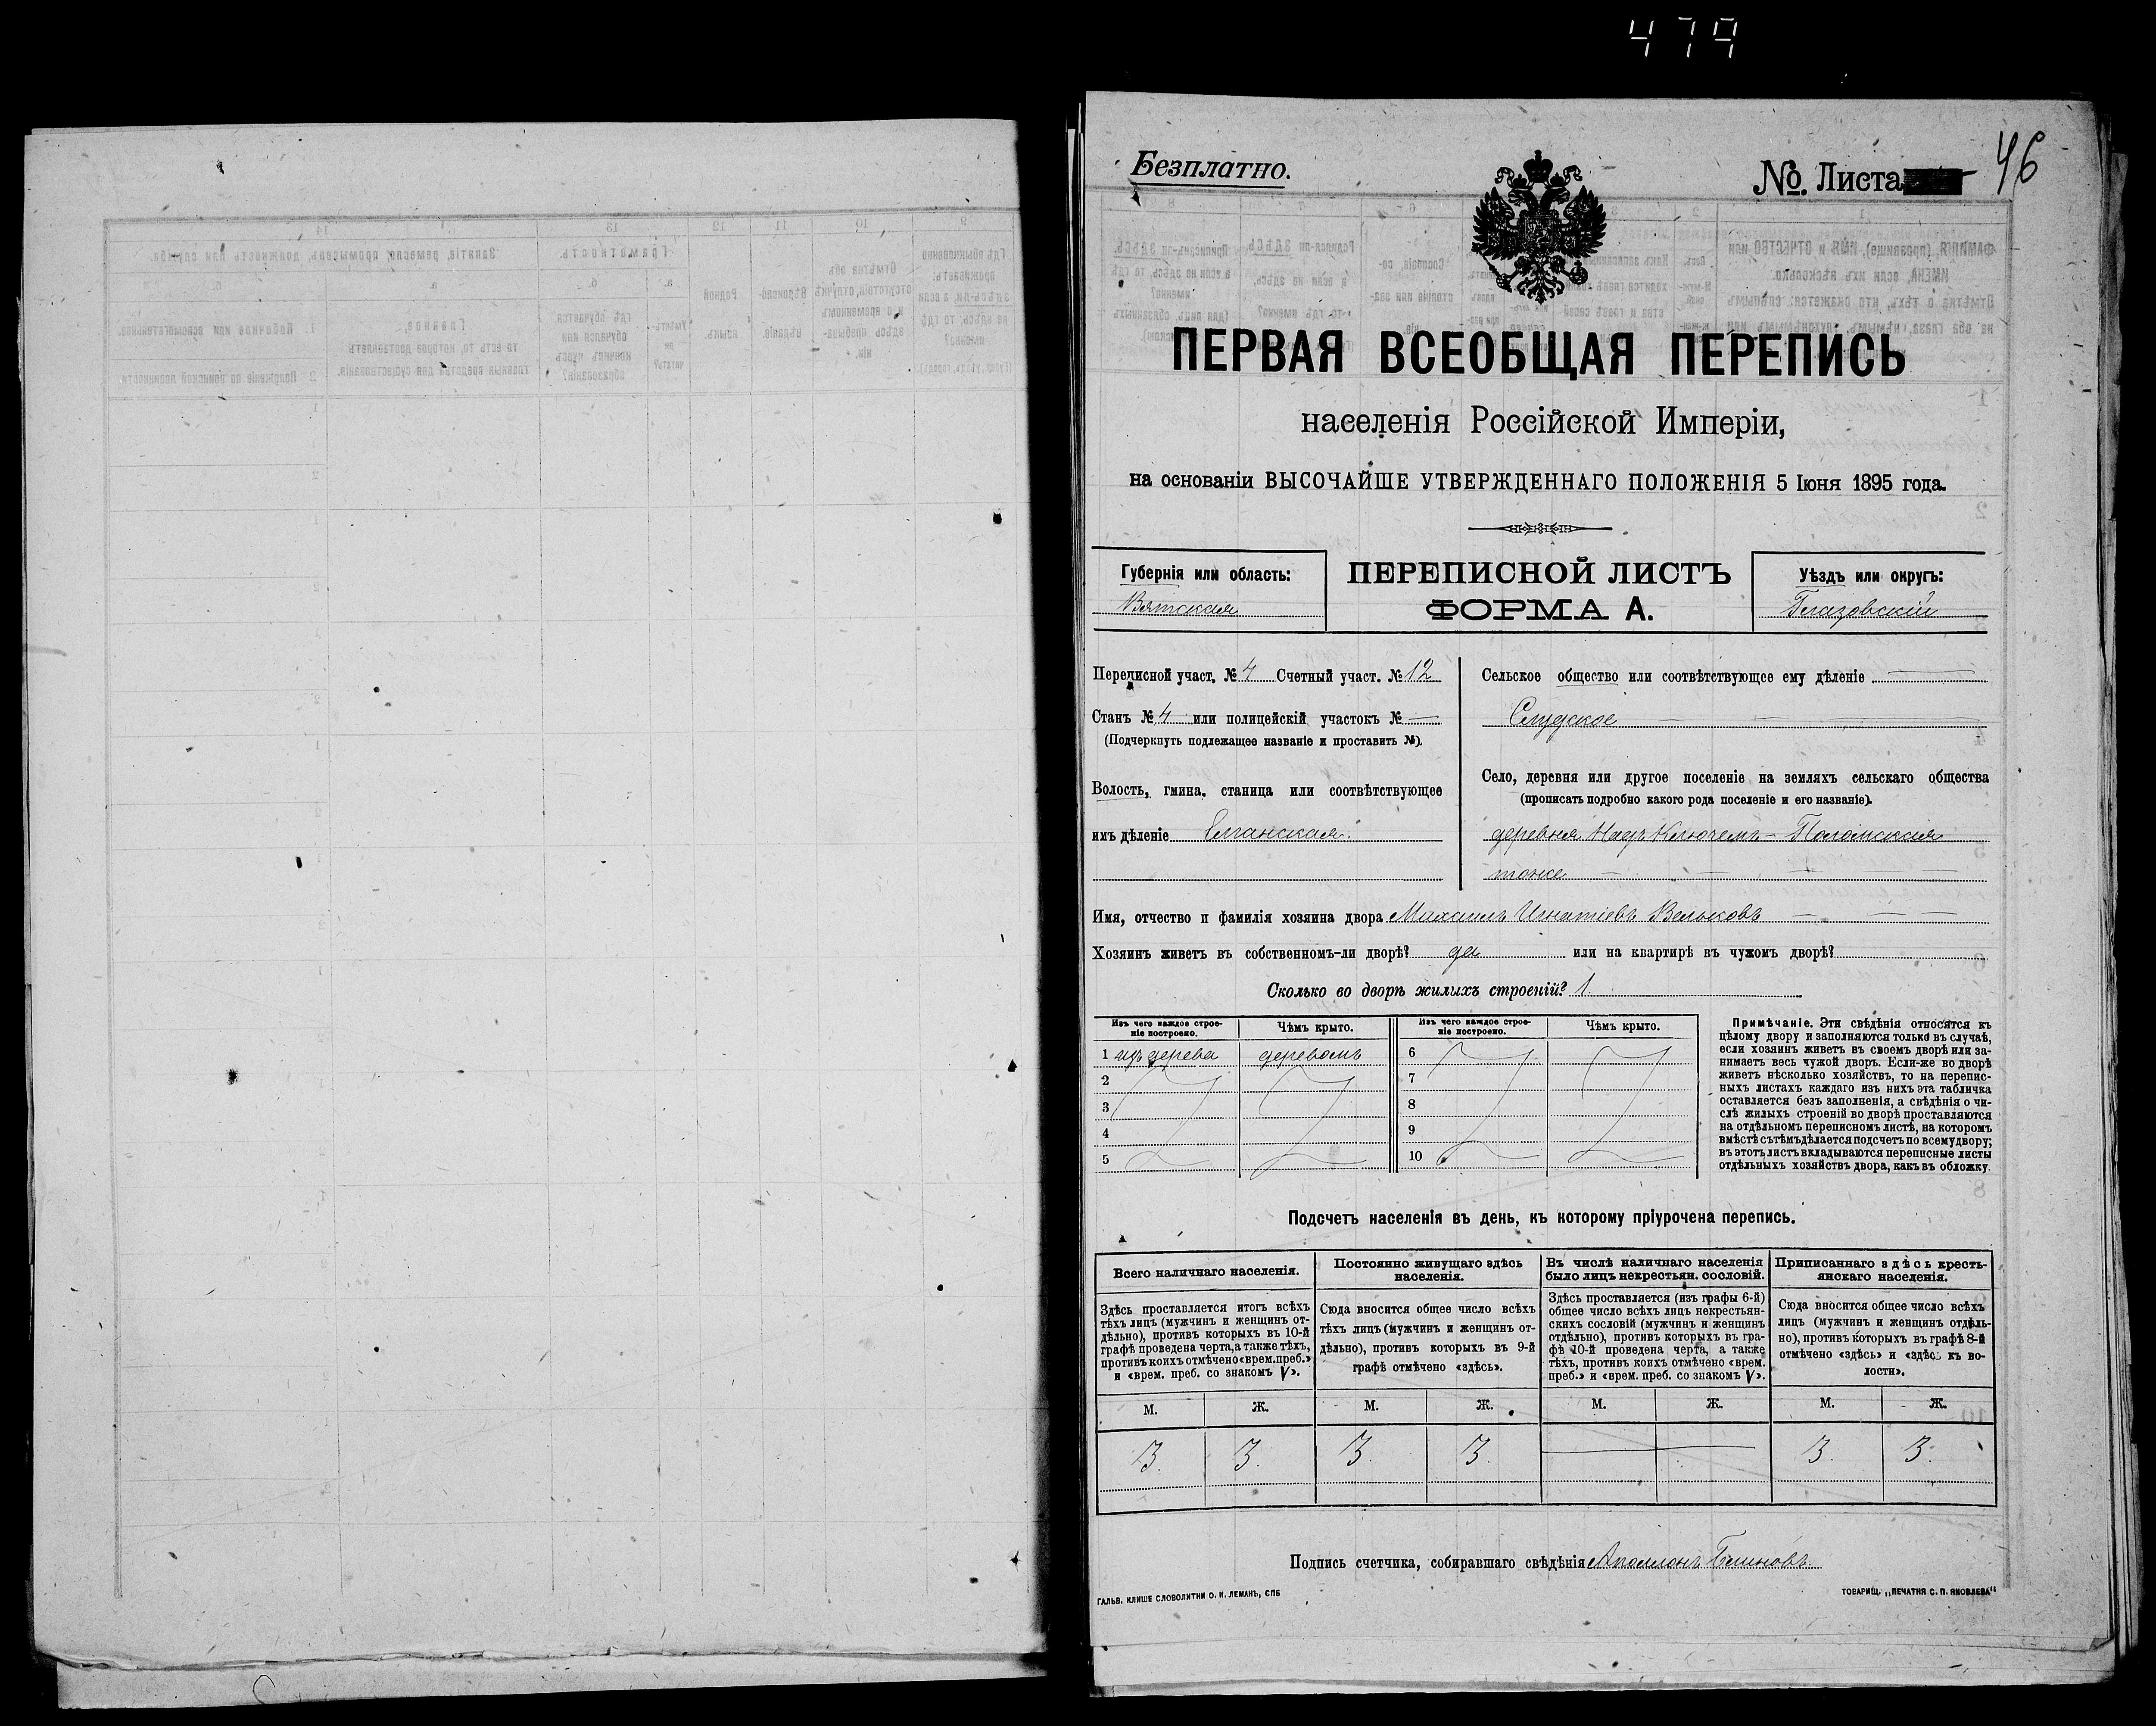 479
Безплатно.
№. Листа 46
ПЕРВАЯ ВСЕОБЩАЯ ПЕРЕПИСЬ
населенія Россійской Имперіи,
на основаніи ВЫСОЧАЙШЕ УТВЕРЖДЕННАГО ПОЛОЖЕНІЯ 5 Іюня 1895 года.
Губернія или область:
Вятская
ПЕРЕПИСНОЙ ЛИСТЪ
ФОРМА А.
Уѣздъ или округъ:
Глазовскій
Переписной участ. № 4 Счетный участ. № 12
Станъ № 4 или полицейскій участокъ № —
(Подчеркнуть подлежащее названіе и проставить №).
Волость, гмина, станица или соотвѣтствующее
имъ дѣленіе Еланская.
Сельское общество или соотвѣтствующее ему дѣленіе —
Слудское — — —
Село, деревня или другое поселеніе на земляхъ сельскаго общества
(прописать подробно какого рода поселеніе и его названіе).
деревня Надъ Ключемъ - Поломская
тоже — — — — —
Имя, отчество и фамилія хозяина двора Михаилъ Игнатіевъ Вельковъ — — —
Хозяинъ живетъ въ собственномъ-ли дворѣ? да или на квартирѣ въ чужомъ дворѣ?
Сколько во дворѣ жилыхъ строеній? 1.
Изъ чего каждое строе-
ніе построено.
Чѣмъ крыто.
Изъ чего каждое строе-
ніе построено.
Чѣмъ крыто.
1 изъ дерева деревомъ 6
2 7
3 8
4 9
5 10
Примѣчаніе. Эти свѣдѣнія относятся къ
цѣлому двору и заполняются только въ случаѣ,
если хозяинъ живетъ въ своемъ дворѣ или за-
нимаетъ весь чужой дворъ. Если-же во дворѣ
живетъ нѣсколько хозяйствъ, то на перепис-
ныхъ листахъ каждаго изъ нихъ эта табличка
оставляется безъ заполненія, а свѣдѣнія о чи-
слѣ жилыхъ строеній во дворѣ проставляются
на отдѣльномъ переписномъ листѣ, на которомъ
вмѣстѣ съ тѣмъ дѣлается подсчетъ по всему двору;
въ этотъ листъ вкладываются переписные листы
отдѣльныхъ хозяйствъ двора, какъ въ обложку.
Подсчетъ населенія въ день, къ которому пріурочена перепись.
Всего наличнаго населенія.
Здѣсь проставляется итогъ всѣхъ
тѣхъ лицъ (мужчинъ и женщинъ от-
дѣльно), противъ которыхъ въ 10-й
графѣ проведена черта, а также тѣхъ,
противъ коихъ отмѣчено «врем. преб.»
и «врем. преб. со знакомъ V».
Постоянно живущаго здѣсь
населенія.
Сюда вносится общее число всѣхъ
тѣхъ лицъ (мужчинъ и женщинъ от-
дѣльно), противъ которыхъ въ 9-й
графѣ отмѣчено «здѣсь».
Въ числѣ наличнаго населенія
было лицъ некрестьян. сословій.
Здѣсь проставляется (изъ графы 6-й)
общее число всѣхъ лицъ некрестьян-
скихъ сословій (мужчинъ и женщинъ
отдѣльно), противъ которыхъ въ гра-
фѣ 10-й проведена черта, а также
тѣхъ, противъ коихъ отмѣчено «врем.
преб.» и «врем. преб. со знакомъ V».
Приписаннаго здѣсь кресть-
янскаго населенія.
Сюда вносится общее число всѣхъ
лицъ (мужчинъ и женщинъ отдѣль-
но), противъ которыхъ въ графѣ 8-й
отмѣчено «здѣсь» и «здѣсь къ во-
лости».
М. Ж. М. Ж. М. Ж. М. Ж.
3. 3. 3. 3. — — 3. 3.
Подпись счетчика, собиравшаго свѣдѣнія Аполлонъ Блиновъ.
ГАЛЬВ. КЛИШЕ СЛОВОЛИТНИ О. И. ЛЕМАНЪ, СПБ
ТОВАРИЩ. „ПЕЧАТНЯ С. П. ЯКОВЛЕВА“